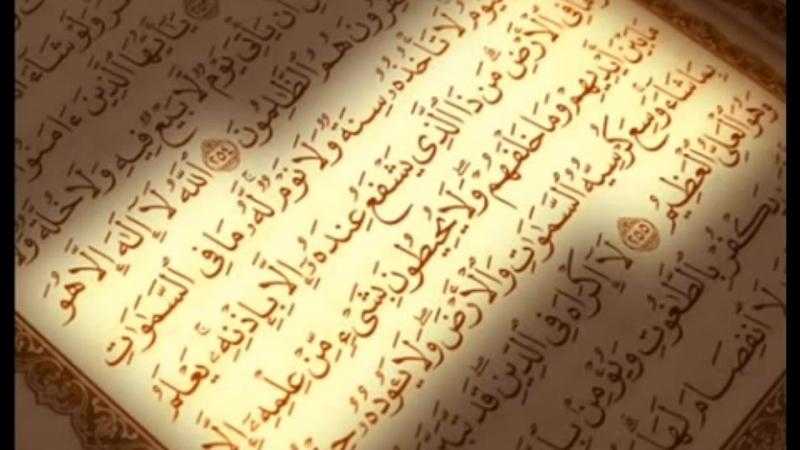 وَلَوْ شَآءَ
يَٰٓأَيُّهَا ٱلَّذِينَ ءَامَنُوٓا۟
أَن يَأْتِىَ يَوْمٌ لَّا بَيْعٌ فِيهِ وَلَا خُلَّةٌ وَلَا
هُمُ ٱلظَّٰلِمُونَ ٢٥٤ ٱللَّهُ لَآ إِلَٰهَ إِلَّا هُوَ
لَا تَأْخُذُهُۥ سِنَةٌ وَلَا نَوْمٌ ۚ لَّهُۥ مَا فِى ٱلسَّمَٰوَٰتِ
وَمَا فِى ٱلْأَرْضِ ۗ مَن ذَا ٱلَّذِى يَشْفَعُ عِندَهُۥٓ إِلَّا بِإِذْنِهِۦ ۚ يَعْلَمُ
مَا بَيْنَ أَيْدِيهِمْ وَمَا خَلْفَهُمْ ۖ وَلَا يُحِيطُونَ بِشَىْءٍ مِّنْ عِلْمِهِۦٓ إِلَّا
بِمَا شَآءَ ۚ وَسِعَ كُرْسِيُّهُ ٱلسَّمَٰوَٰتِ وَٱلْأَرْضَ ۖ وَلَا يَـُٔودُهُۥ
وَهُوَ ٱلْعَلِىُّ ٱلْعَظِيمُ ٢٥٥ لَآ إِكْرَاهَ فِى ٱلدِّينِ ۖ قَد
يَكْفُرْ بِٱلطَّٰغُوتِ وَيُؤْمِنۢ
لَا ٱنفِصَامَ لَهَا